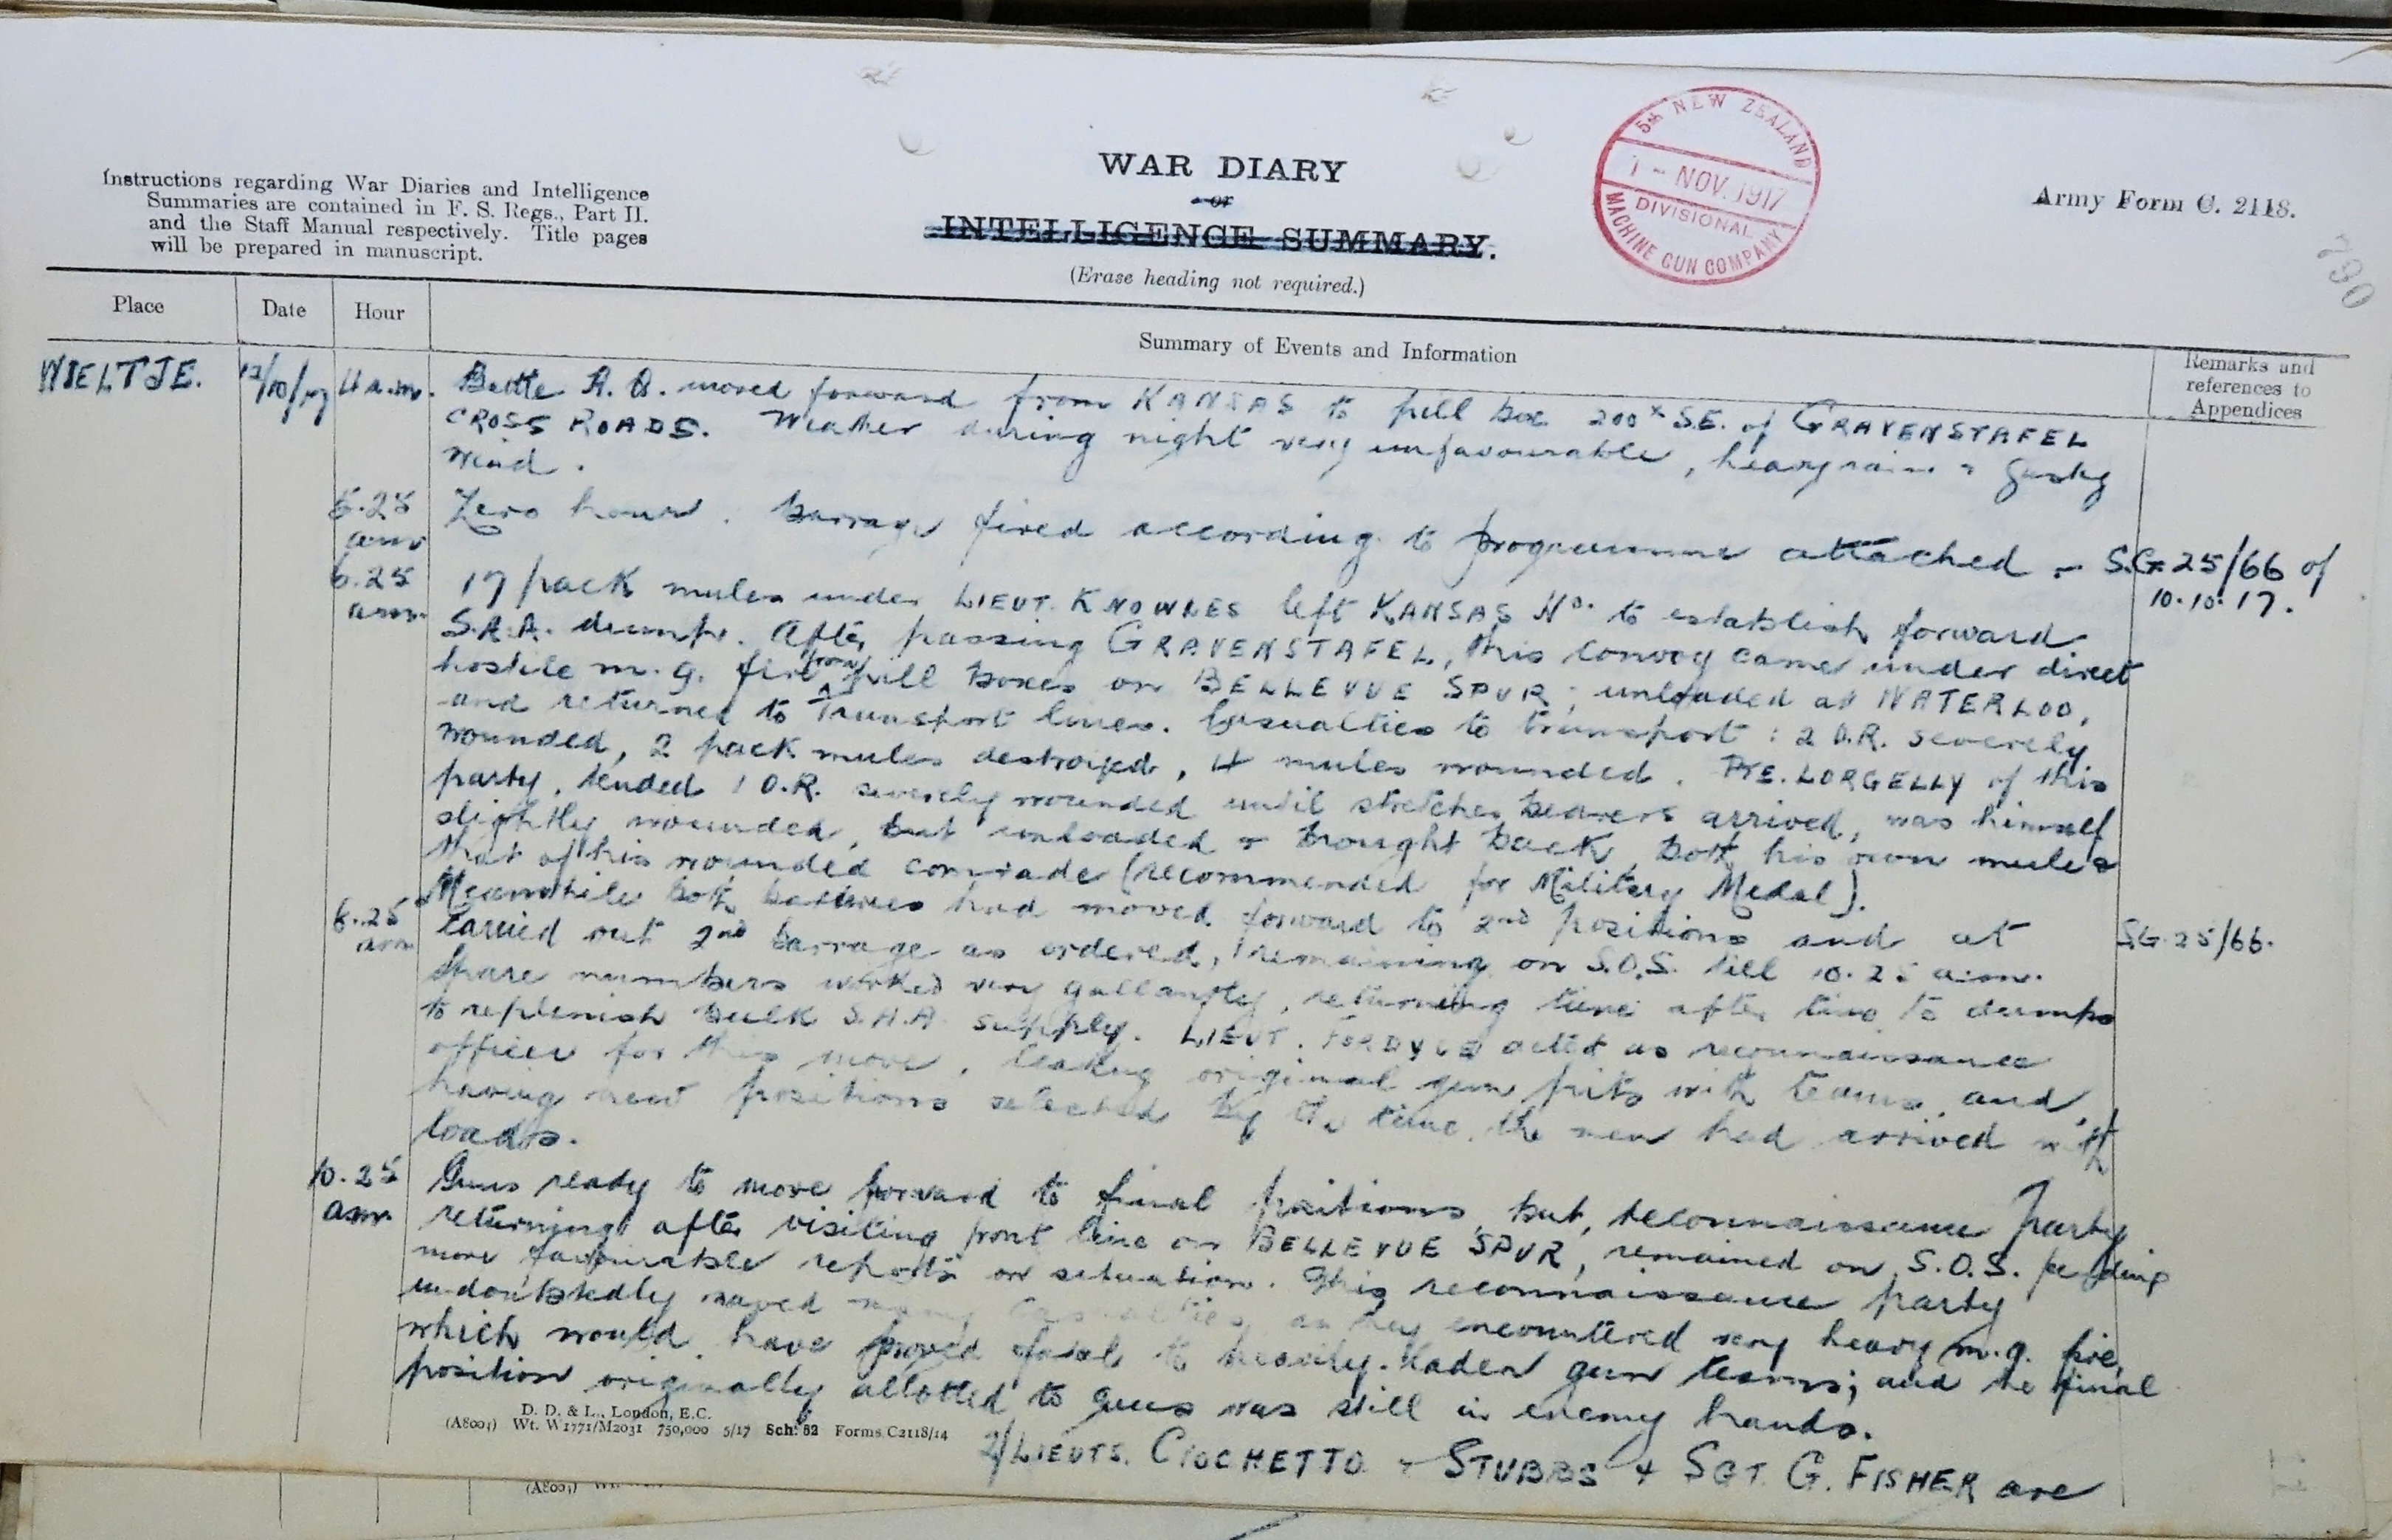 5th NEW ZEALAND
1 - NOV. 1917
DIVISIONAL
MACHINE GUN COMPANY
Instructions regarding War Diaries and Intelligence
Summaries are contained in F. S. Regs., Part II.
and the Staff Manual respectively. Title pages
will be prepared in manuscript.
WAR DIARY
or
INTELLIGENCE SUMMARY.
(Erase heading not required.)
Army Form C. 2118.
790
Place Date Hour Summary of Events and Information Remarks and
references to
Appendices
WIELTJE. 12/10/17 4 a.m. Battle H.Q. moved forward from KANSAS to pill box 200x S.E. of GRAVENSTAFEL
CROSS ROADS. Weather during night very unfavourable, heavy rain & gusty
wind.
5.25 am Zero hour. Barrage fired according to programme attached - S.G. 25/66 of
10.10.17.
6.25 am. 17 pack mules under LIEUT. KNOWLES left KANSAS Ho. to establish forward
S.A.A. dumps. After passing GRAVENSTAFEL, this convoy came under direct
hostile m.g. fire from pill boxes on BELLEVUE SPUR; unloaded at WATERLOO,
and returned to Transport lines. Casualties to transport: 2 O.R. severely
wounded, 2 pack mules destroyed, 4 mules wounded. PTE. LORGELLY of this
party, tended 1 O.R. severely wounded until stretcher bearers arrived, was himself
slightly wounded, but unloaded & brought back both his own mule &
that of his wounded comrade (recommended for Military Medal).
Meanwhile both batteries had moved forward to 2nd positions and at
8.25 am carried out 2nd barrage as ordered, remaining on S.O.S. till 10.25 a.m. S.G. 25/66.
Spare numbers worked very gallantly, returning time after time to dumps
to replenish bulk S.A.A. supply. LIEUT. FORDYCE acted as reconnaissance
officer for this move, leaving original gun pits with teams, and
having new positions selected by the time the men had arrived with
loads.
10.25 am. Guns ready to move forward to final positions, but, reconnaissance party
returning after visiting front line on BELLEVUE SPUR, remained on S.O.S. pending
more favourable reports on situation. This reconnaissance party
undoubtedly saved many casualties, as they encountered very heavy m.g. fire,
which would have proved fatal to heavily-laden gun teams; and the final
position originally allotted to guns was still in enemy hands.
2/LIEUTS. CIOCHETTO & STUBBS & SGT. G. FISHER are
D. D. & L., London, E.C.
(A8004) Wt. W1771/M2031 750,000 5/17 Sch. 52 Forms C2118/14